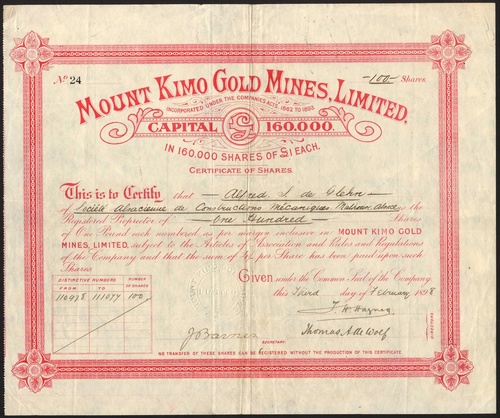 No 24
-100- Shares
MOUNT KIMO GOLD MINES, LIMITED.
INCORPORATED UNDER THE COMPANIES ACTS 1862 TO 1893
CAPITAL £ 160,000.
IN 160,000 SHARES OF £1 EACH.
CERTIFICATE OF SHARES.
This is to Certify that Alfred de Glehn
of Société Alsacienne de Constructions Mécaniques Mulhouse Alsace is the
Registered Proprietor of One Hundred Shares
of One Pound each numbered as per margin inclusive in MOUNT KIMO GOLD
MINES, LIMITED, subject to the Articles of Association and Rules and Regulations
of the Company and that the sum of per Share has been paid upon such
Shares
Given under the Common Seal of the Company,
this Third day of February 1898
DISTINCTIVE NUMBERS NUMBER OF SHARES
FROM TO
110978 111077 100
Thomas A de Wolf
DIRECTORS
SECRETARY.
NO TRANSFER OF THESE SHARES CAN BE REGISTERED WITHOUT THE PRODUCTION OF THIS CERTIFICATE